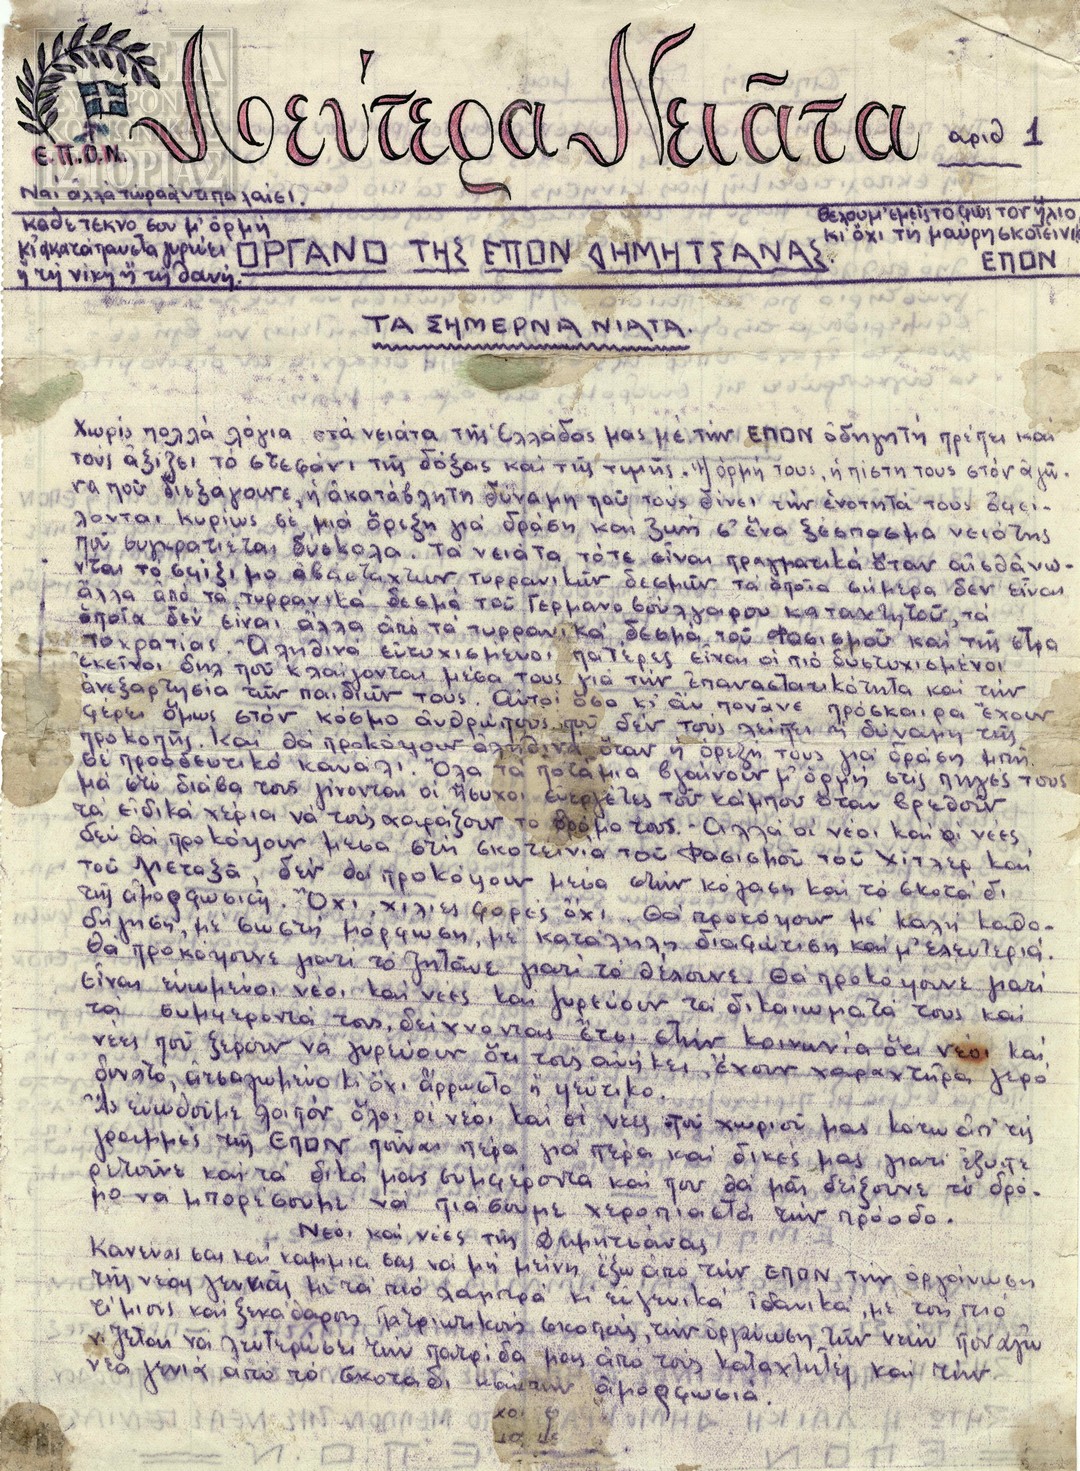 Λεύτερα Νειᾶτα
αριθ 1
Ε.Π.Ο.Ν.
Ναι ἀλλά τώρα ἀντιπαλαίει.
κάθε τέκνο σου μ' ὁρμή
κι' ακατάπαυστα γυρεύει
ἤ τη νίκη ἤ τη θανή.
ΟΡΓΑΝΟ ΤΗΣ ΕΠΟΝ ΔΗΜΗΤΣΑΝΑΣ
θέλουμ' ἐμεῖς το φῶς τον ἥλιο
κι' ὄχι τη μαύρη σκοτεινιά
ΕΠΟΝ
ΤΑ ΣΗΜΕΡΝΑ ΝΙΑΤΑ.
Χωρίς πολλά λόγια στά νειάτα τῆς Ελλάδας μας μέ τήν ΕΠΟΝ ὁδηγητή πρέπει και
τους ἀξίζει τό στεφάνι τῆς δόξας και τῆς τιμῆς. Ἡ ὁρμή τους, ἡ πίστη τους στόν ἀγῶ-
να ποῦ διεξάγουνε, ἡ ἀκατάβλητη δύναμη ποῦ τους δίνει τήν ἑνότητά τους ὀφεί-
λονται κυρίως σέ μιά ὄρεξη γιά δράση και ζωή σ' ἕνα ξέσπασμα νειότης
ποῦ συγκρατιέται δύσκολα. Τά νειάτα τότε είναι πραγματικά ὅταν αἰσθάνω-
νται το σφίξιμο ἀβάσταχτων τυρρανικῶν δεσμῶν τα ὁποῖα σήμερα δεν εἶναι
ἄλλα ἀπό τά τυρρανικά δεσμά τοῦ Γερμανοβούλγαρου καταχτητοῦ, τά
ὁποῖα δέν εἶναι ἄλλα ἀπό τά τυρρανικά δεσμά τοῦ Φασισμοῦ και τῆς στρα
τοκρατίας. Ἀληθινά εὐτυχισμένοι πατέρες εἶναι οἱ πιό δυστυχισμένοι
ἐκεῖνοι δηλ ποῦ κλαίγονται μέσα τους γιά τήν ἐπαναστατικότητα και τήν
ἀνεξαρτησία τῶν παιδιῶν τους. Αὐτοί ὅσο κι' ἄν πονᾶνε πρόσκαιρα ἔχουν
φέρει ὅμως στόν κόσμο ἀνθρώπους ποῦ δέν τους λείπει ἡ δύναμη τῆς
προκοπῆς. Και θά προκόψουν ἀληθινά ὅταν ἡ ὄρεξή τους γιά δράση μπῆ
σέ προοδευτικό κανάλι. Ὅλα τά ποτάμια βγαίνουν μ' ὁρμή στίς πηγές τους
μά στό διάβα τους γίνονται οἱ ἥσυχοι εὐεργέτες τοῦ κάμπου ὅταν βρεθοῦν
τά εἰδικά χέρια νά τούς χαράξουν το δρόμο τους. - Αλλά οἱ νέοι και οἱ νέες
δέν θά προκόψουν μέσα στή σκοτεινιά τοῦ Φασισμοῦ τοῦ Χίτλερ και
τοῦ Μεταξᾶ, δέν θά προκόψουν μέσα στήν κόλαση και τό σκοτάδι
τῆς ἀμορφωσιᾶς. Ὄχι, χίλιες φορές ὄχι. Θά προκόψουν μέ καλή καθο-
δήγηση, μέ σωστή μόρφωση, μέ κατάληλη διαφώτιση και μ' ἐλευτεριά.
Θά προκόψουνε γιατί τό ζητᾶνε γιατί τό θέλουνε. Θά προκόψουνε γιατί
εἶναι ἑνωμένοι νέοι και νέες και γυρεύουν τά δικαιώματά τους και
τά συμφέροντά τους, δείχνοντας ἔτσι στήν κοινωνία ὅτι νέοι και
νέες ποῦ ξέρουν νά γυρεύουν ὅτι τους ἀνήκει, ἔχουν χαραχτῆρα γερό
δυνατό, ατσαλωμένο κι' ὄχι ἄρρωστο ἤ ψεύτικο.
Ἄς ἑνωθοῦμε λοιπόν ὅλοι οἱ νέοι και οἱ νέες τοῦ χωριοῦ μας κάτω ἀπ' τίς
γραμμές τῆς ΕΠΟΝ ποῦναι πέρα γιά πέρα και δικές μας γιατί ἐξυπη
ρετοῦνε και τά δικά μας συμφέροντα και που θά μᾶς δείξουνε τό δρό-
μο νά μπορέσουμε νά πιάσουμε χεροπιαστά τήν πρόοδο.
Νέοι και νέες τῆς Δημητσάνας
Κανένας σας και καμμια σας νά μή μείνη ἔξω ἀπό τήν ΕΠΟΝ τήν ὀργάνωση
τῆς νέας γενιᾶς μέ τά πιό λαμπρά κι' εὐγενικά ἰδανικά, μέ τους πιό
τίμιους και ξεκάθαρους Πατριωτικούς σκοπούς, τήν ὀργάνωση τῶν νέων ποῦ ἀγω
νίζεται νά λευτερώσει τήν πατρίδα μας ἀπό τους καταχτητές και τήν
νέα γενιά ἀπό τό σκοτάδι και τήν ἀμορφωσιά.